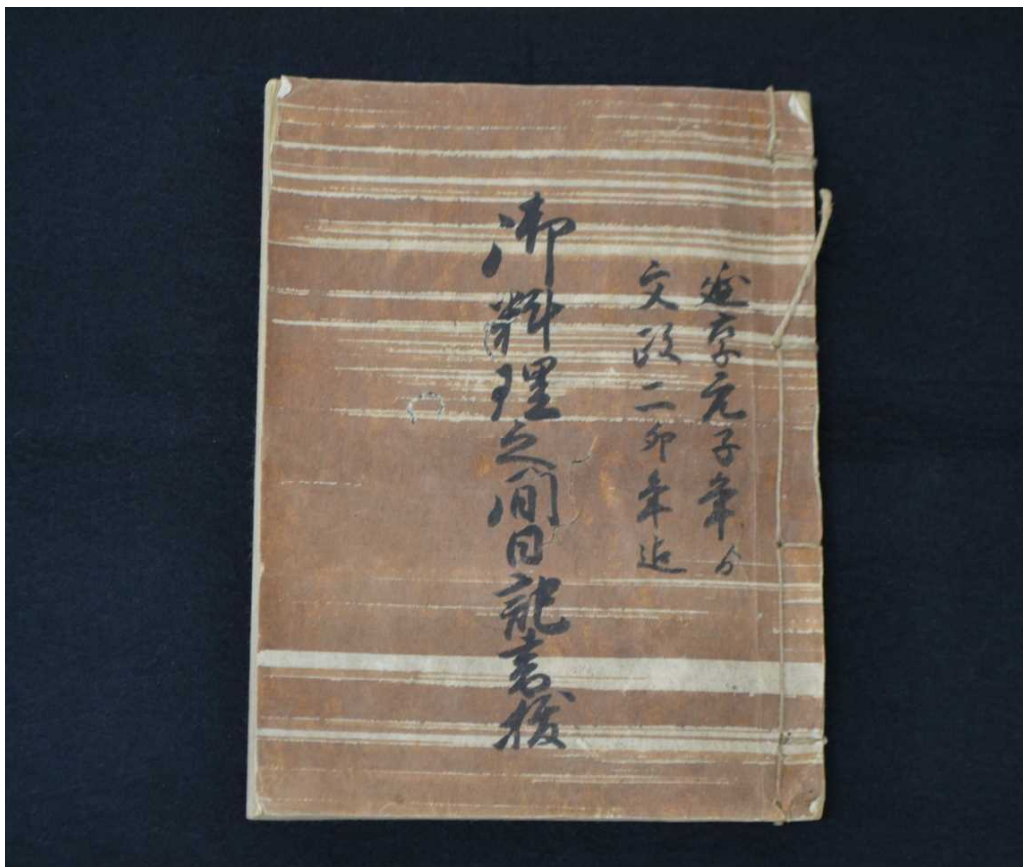 延享元子年ゟ
文政二卯年迄
御料理之間日記書抜